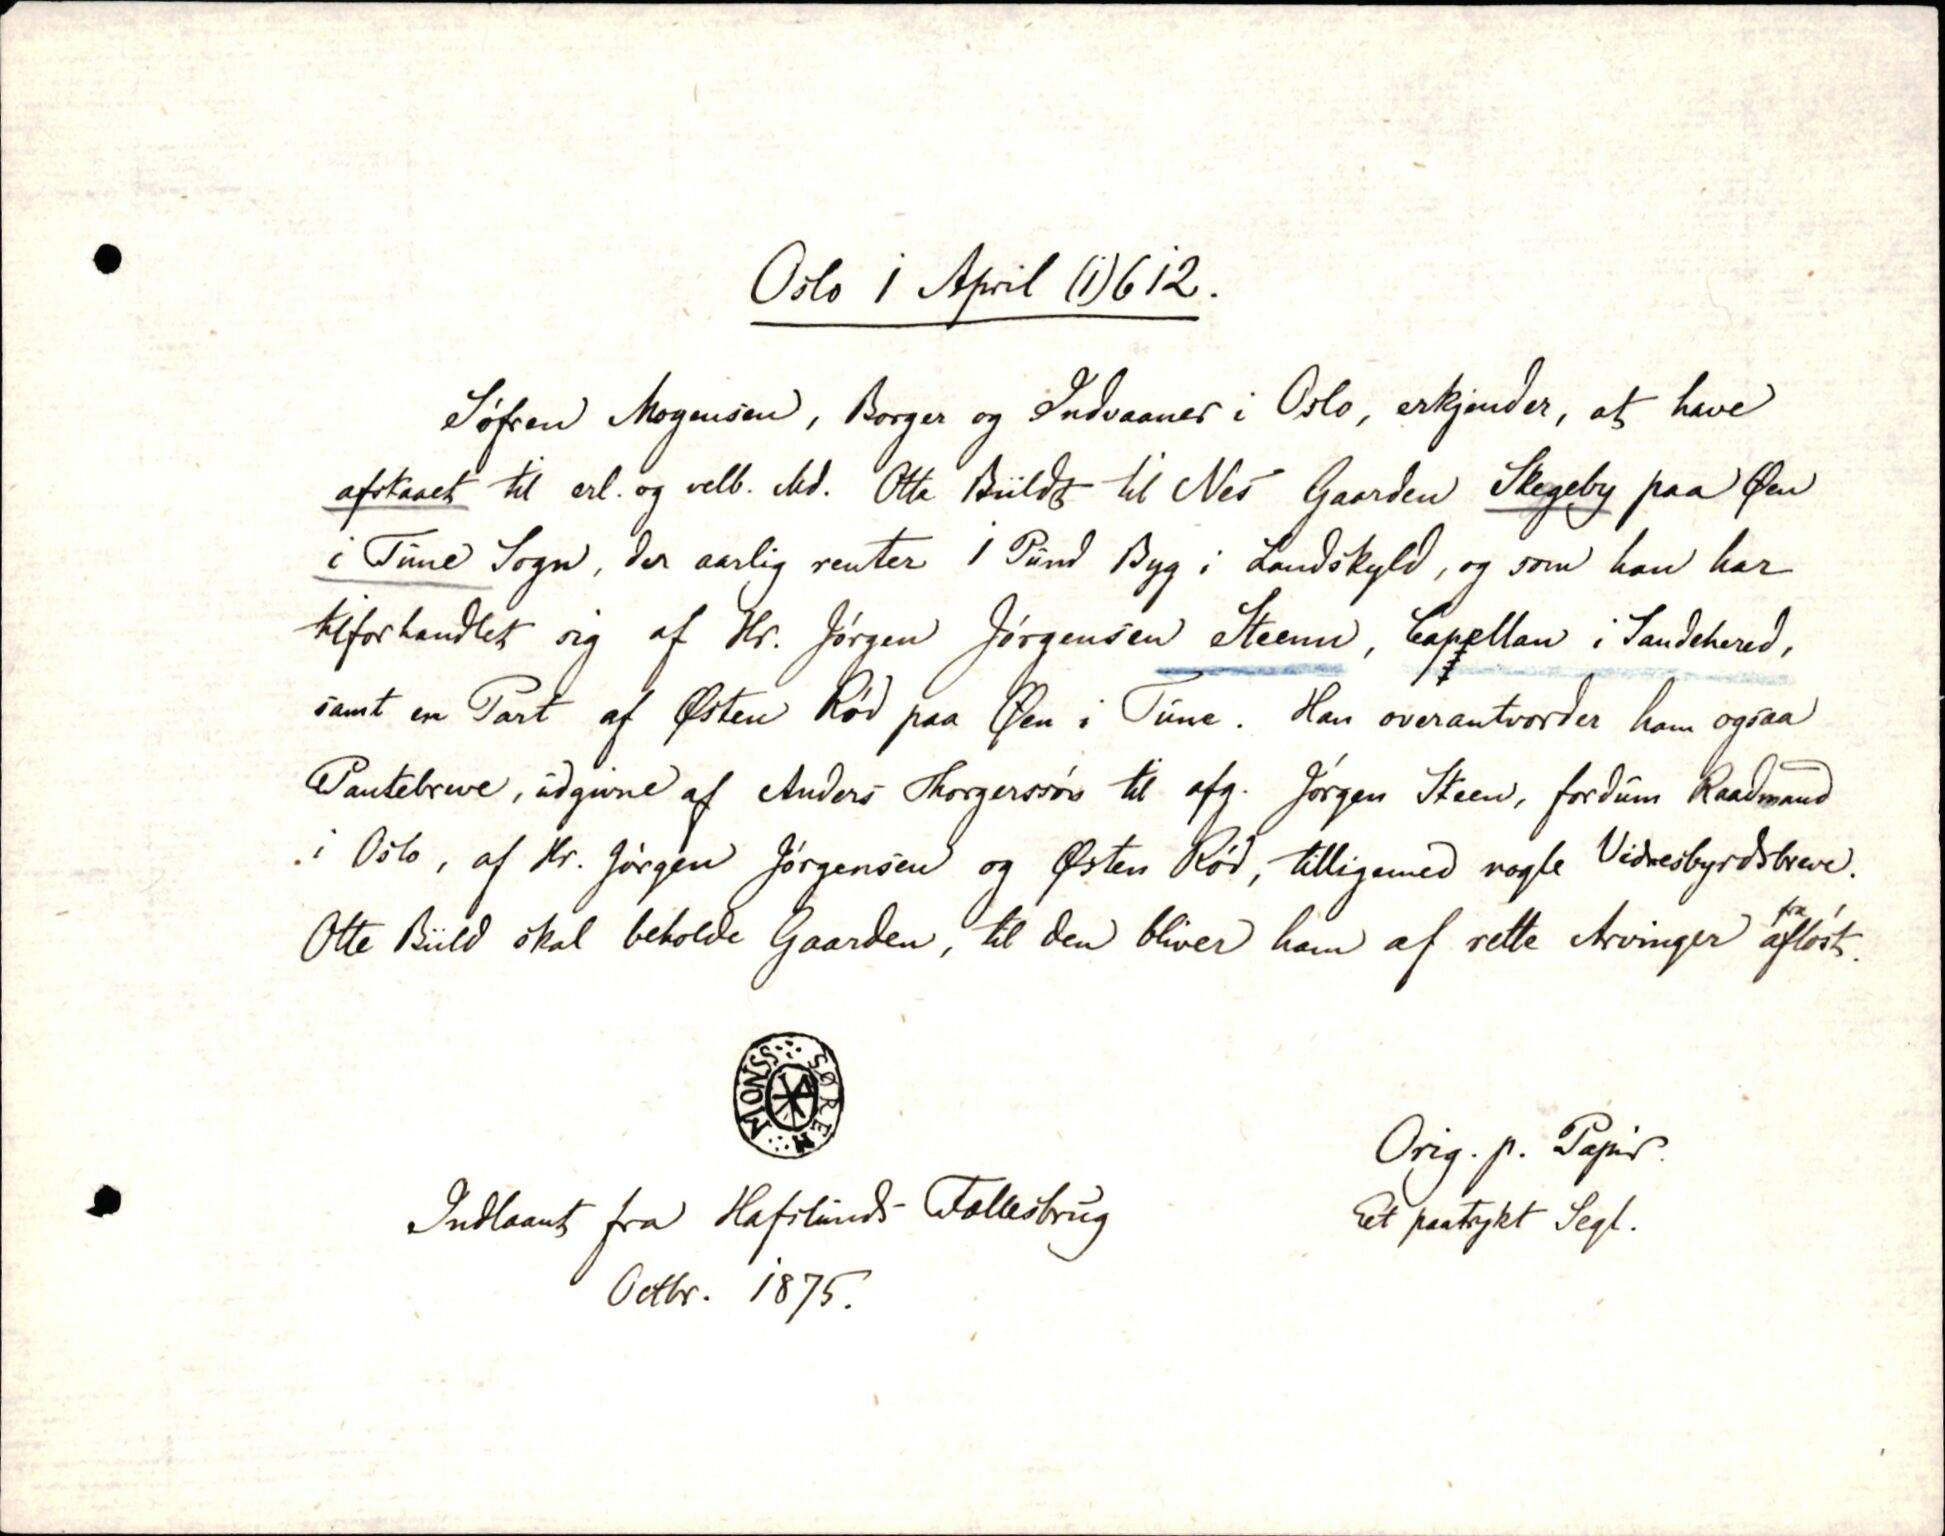 Oslo 1 April (1)612.
Søfren Mogensen, Borger og Indvaaner i Oslo, erkjender, at have
afstaaet til erl. og velb. Md. Otte Büldt til Nes Gaarden Skegeby paa Øen
i Tune Sogn, der aarlig renter 1 Pund Byg i Landskyld, og som han har
tilforhandlet sig af Hr. Jørgen Jørgensen Steenn, Capellan i Sandehered,
samt en Part af Østen Rød paa Øen i Tune. Han overantvorder ham ogsaa
Pantebreve, udgivne af Anders Thorgerssøn til afg. Jørgen Steen, fordum Raadmand
i Oslo, af Hr. Jørgen Jørgensen og Østen Rød, tilligemed nogle Vidnesbyrdsbreve.
Otte Büld skal beholde Gaarden, til den bliver ham af rette Arvinger fra afløst.
SØREN MONSS
Orig. p. Papir.
Et paatrykt Segl.
Indlaant fra Hafslunds Fællesbrug
Octbr. 1875.